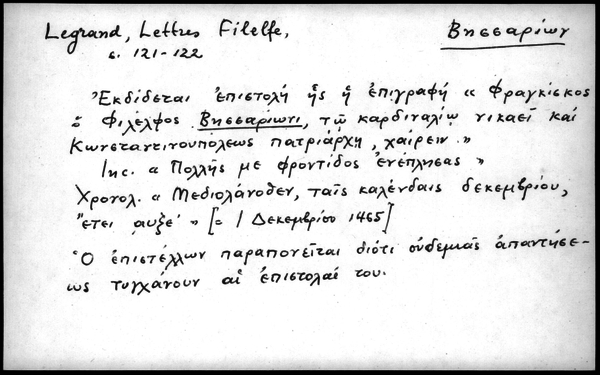 Legrand, Lettres Filelfe,
Βησσαρίων
σ. 121-122
Ἐκδίδεται ἐπιστολή ἧς ἡ ἐπιγραφή « Φραγκίσκος
ὁ Φιλέλφος Βησσαρίωνι, τῷ καρδιναλίῳ νικαεῖ καί
Κωνσταντινουπόλεως πατριάρχῃ, χαίρειν.»
Inc. « Πολλῆς με φροντίδος ἐνέπλησας »
Χρονολ. « Μεδιολάνοθεν, ταῖς καλένδαις δεκεμβρίου,
ἔτει ͵αυξε´ » [= 1 Δεκεμβρίου 1465]
Ὁ ἐπιστέλλων παραπονεῖται διότι οὐδεμιᾶς ἀπαντήσε-
ως τυγχάνουν αἱ ἐπιστολαί του.